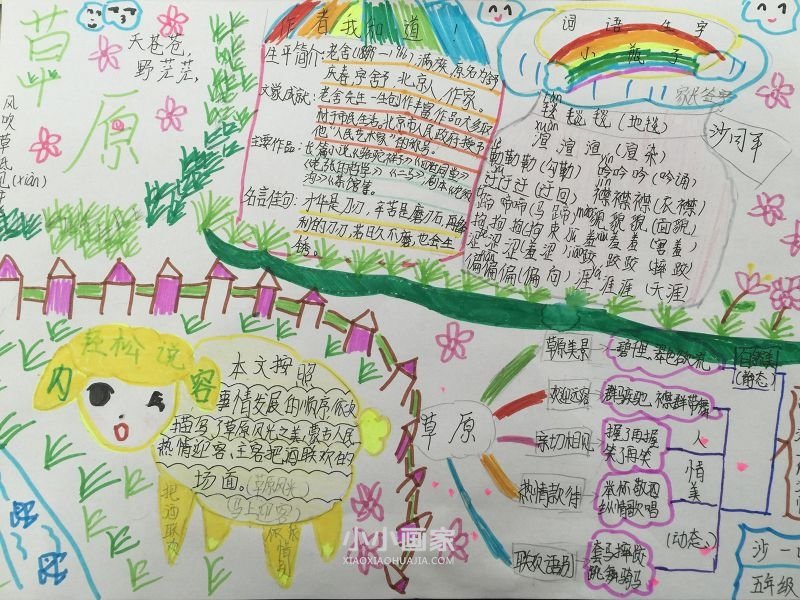 草原
天苍苍，
野茫茫，
风吹草低
(xiàn)
作者我知道！
生平简介：老舍
满族，原名
字舍予，北京人，作家。
文学成就：老舍先生一生创作丰富，作品大多取
材于市民生活。北京市人民政府授予
他"人民艺术家"的称号。
主要作品：长篇小说《骆驼祥子》《四世同堂》
《老张的哲学》《二马》
《茶馆》等。
名言佳句：才华是刀刃，辛苦是磨刀石，再锋
利的刀刃，若日久不磨，也会生
锈。
词语生字
小瓶子
家长签字
毯毯毯(地毯)
xuàn
渲渲渲(渲染)
勒勒勒(勾勒) 吟吟吟(吟诵)
迂迂迂(迂回) 襟襟襟(衣襟)
蹄蹄蹄(马蹄) 貌貌貌(面貌)
拘拘拘(拘束) 羞羞羞(害羞)
涩涩涩(羞涩) 跤跤跤(摔跤)
偏偏偏(偏向) 涯涯涯(天涯)
轻松说
内容
本文按照
事情发展的顺序，依次
描写了草原风光之美、蒙古人民
热情迎客、主客把酒联欢的
场面。(草原风光)
(马上迎客)
把酒联欢
依依惜别
草原
草原美景
欢迎远客
亲切相见
热情款待
联欢话别
群马疾驰、襟飘带舞
握了再握
笑了再笑
举杯敬酒
纵情歌唱
套马摔跤
跳舞骑马
(静态)
人
情
美
(动态)
五年级
小小画家
XIAOXIAOHUAJIA.COM